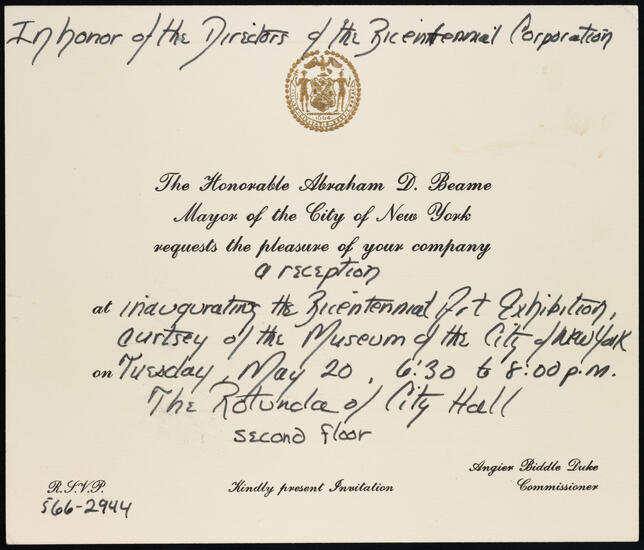 In honor of the Directors of the Bicentennial Corporation
1664
The Honorable Abraham D. Beame
Mayor of the City of New York
requests the pleasure of your company
a reception
at inaugurating the Bicentennial Art Exhibition,
curtsey of the Museum of the City of New York
on Tuesday, May 20, 6:30 to 8:00 p.m.
The Rotunda of City Hall
second floor
Angier Biddle Duke
Commissioner
R.S.V.P.
566-2944
Kindly present Invitation